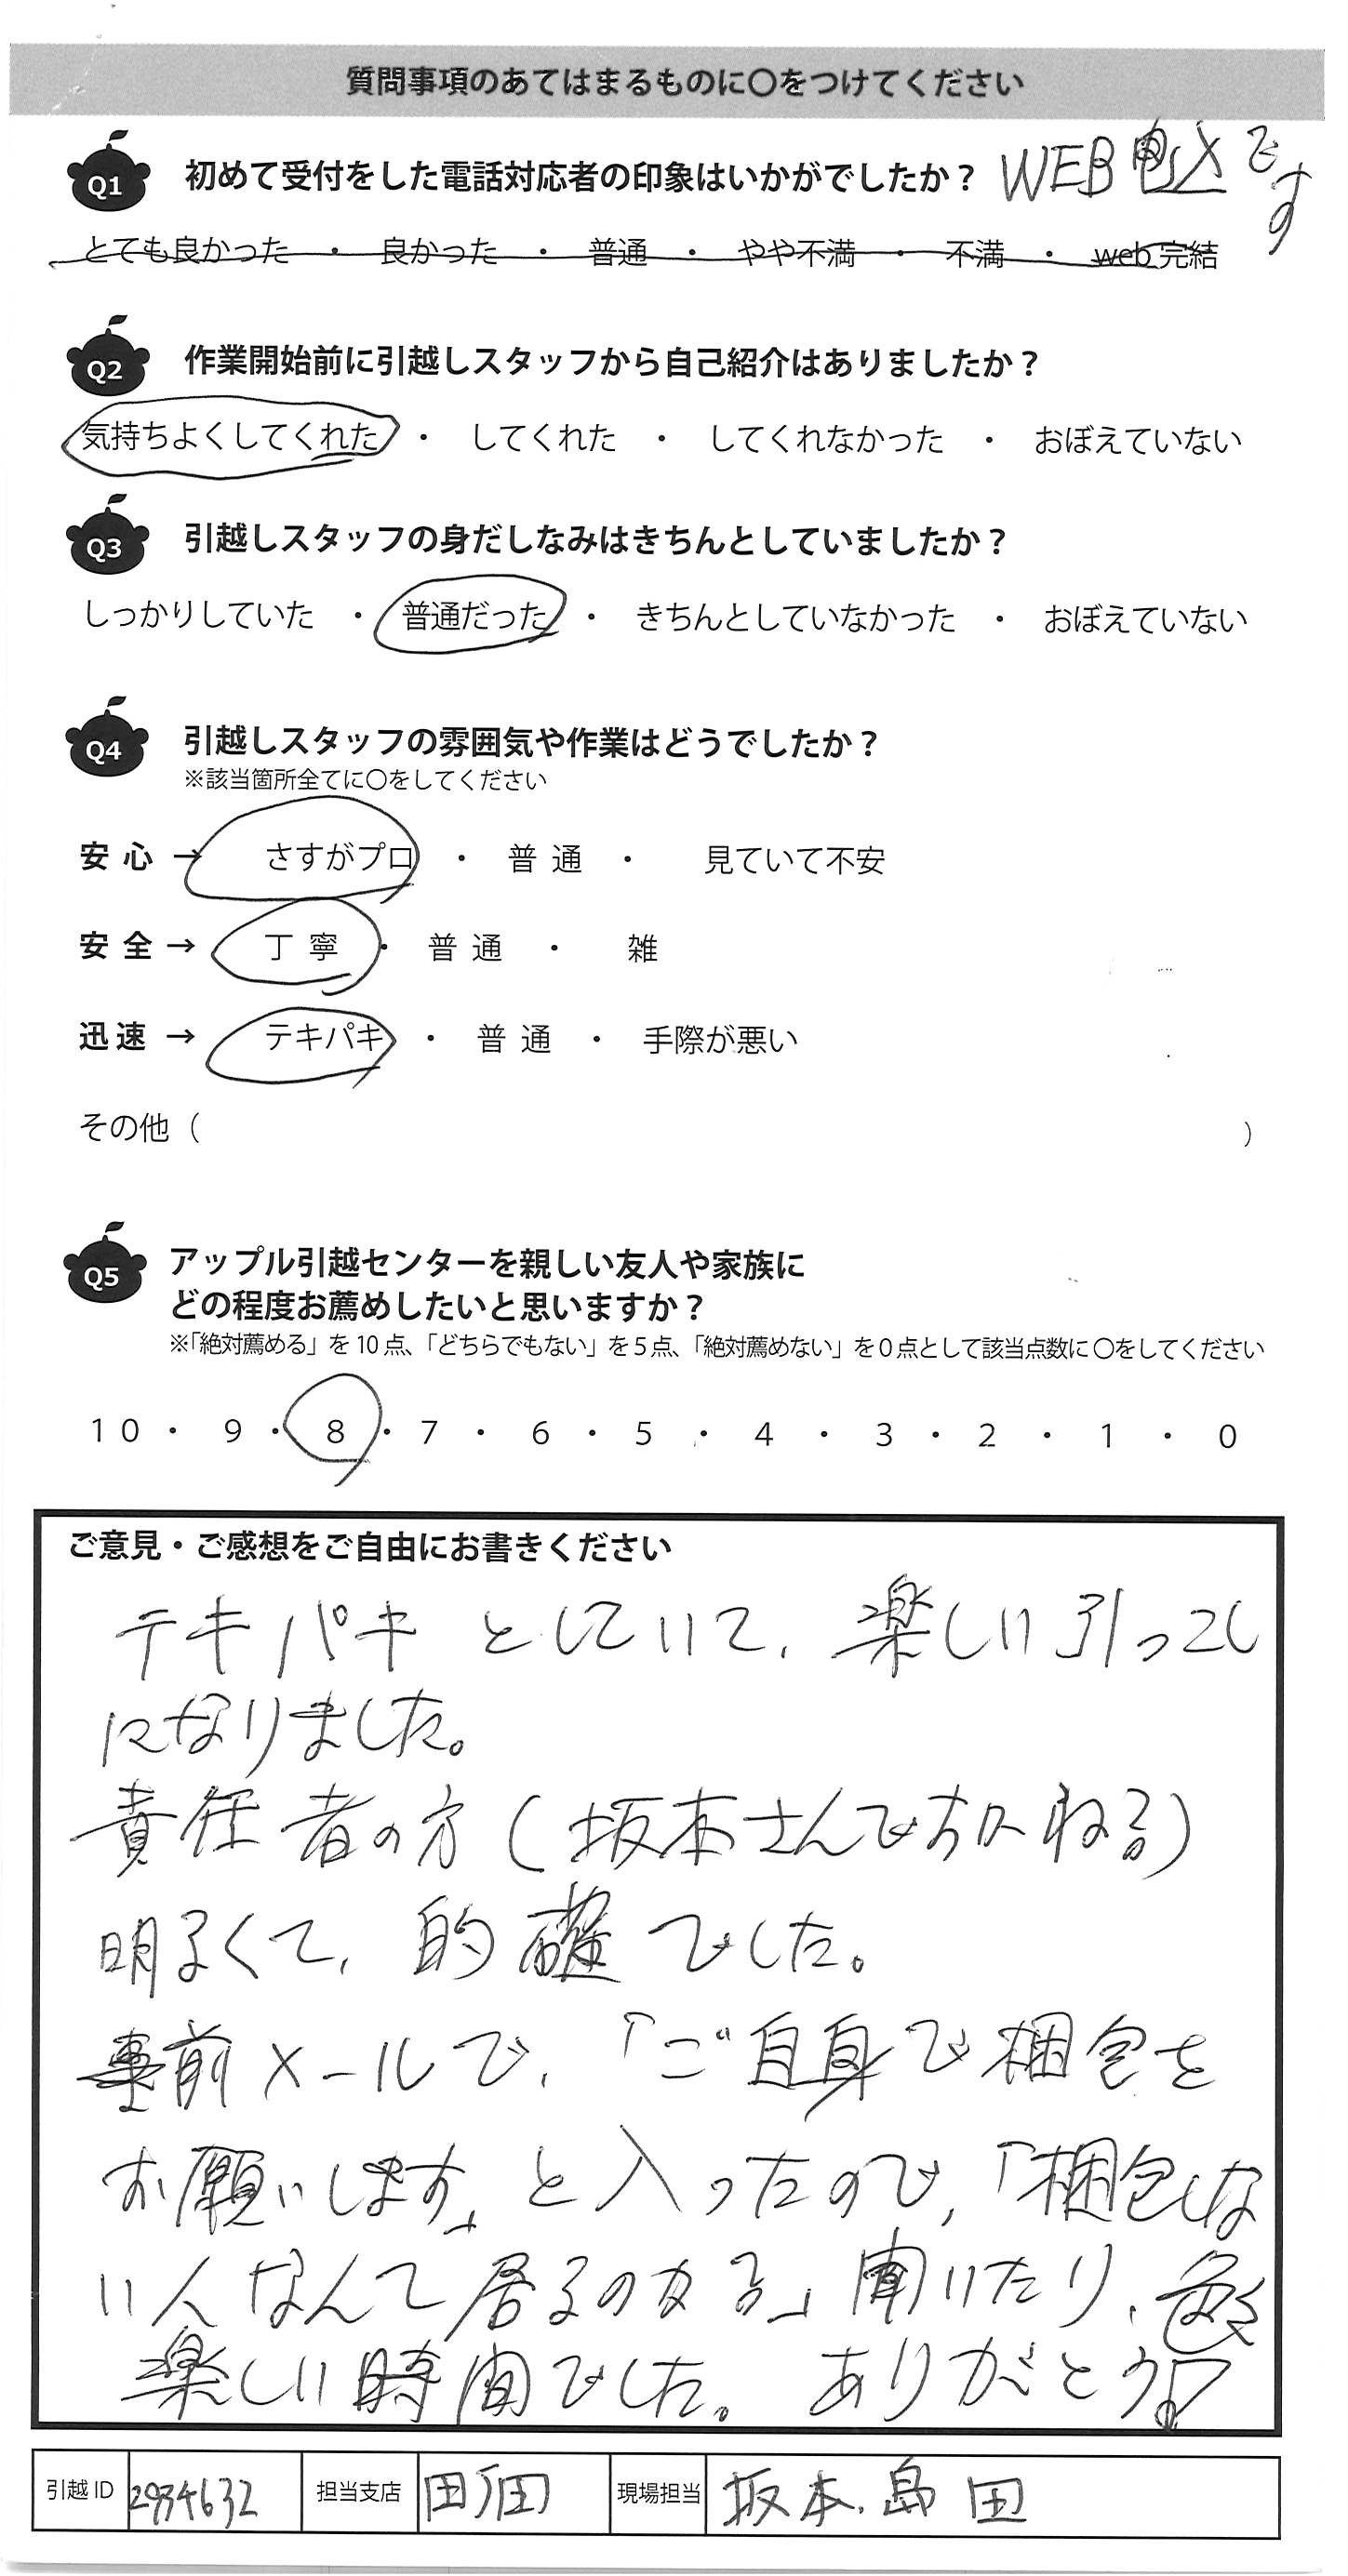 質問事項のあてはまるものに〇をつけてください
Q1 初めて受付をした電話対応者の印象はいかがでしたか？ WEB申込です
とても良かった ・ 良かった ・ 普通 ・ やや不満 ・ 不満 ・ web完結
Q2 作業開始前に引越しスタッフから自己紹介はありましたか？
気持ちよくしてくれた ・ してくれた ・ してくれなかった ・ おぼえていない
Q3 引越しスタッフの身だしなみはきちんとしていましたか？
しっかりしていた ・ 普通だった ・ きちんとしていなかった ・ おぼえていない
Q4 引越しスタッフの雰囲気や作業はどうでしたか？
※該当箇所全てに〇をしてください
安心 → さすがプロ ・ 普通 ・ 見ていて不安
安全 → 丁寧 ・ 普通 ・ 雑
迅速 → テキパキ ・ 普通 ・ 手際が悪い
その他（ ）
Q5 アップル引越センターを親しい友人や家族に
どの程度お薦めしたいと思いますか？
※「絶対薦める」を10点、「どちらでもない」を5点、「絶対薦めない」を0点として該当点数に〇をしてください
10 ・ 9 ・ 8 ・ 7 ・ 6 ・ 5 ・ 4 ・ 3 ・ 2 ・ 1 ・ 0
ご意見・ご感想をご自由にお書きください
テキパキとしていて、楽しい引っこし
になりました。
責任者の方（坂本さんですかね？）
明るくて、的確でした。
事前メールで、「ご自身で梱包を
お願いします」と入ったので、「梱包しな
い人なんて居るのか？」聞いたり、
楽しい時間でした。ありがとう♪
引越ID 2934632 担当支店 現場担当 坂本、島田